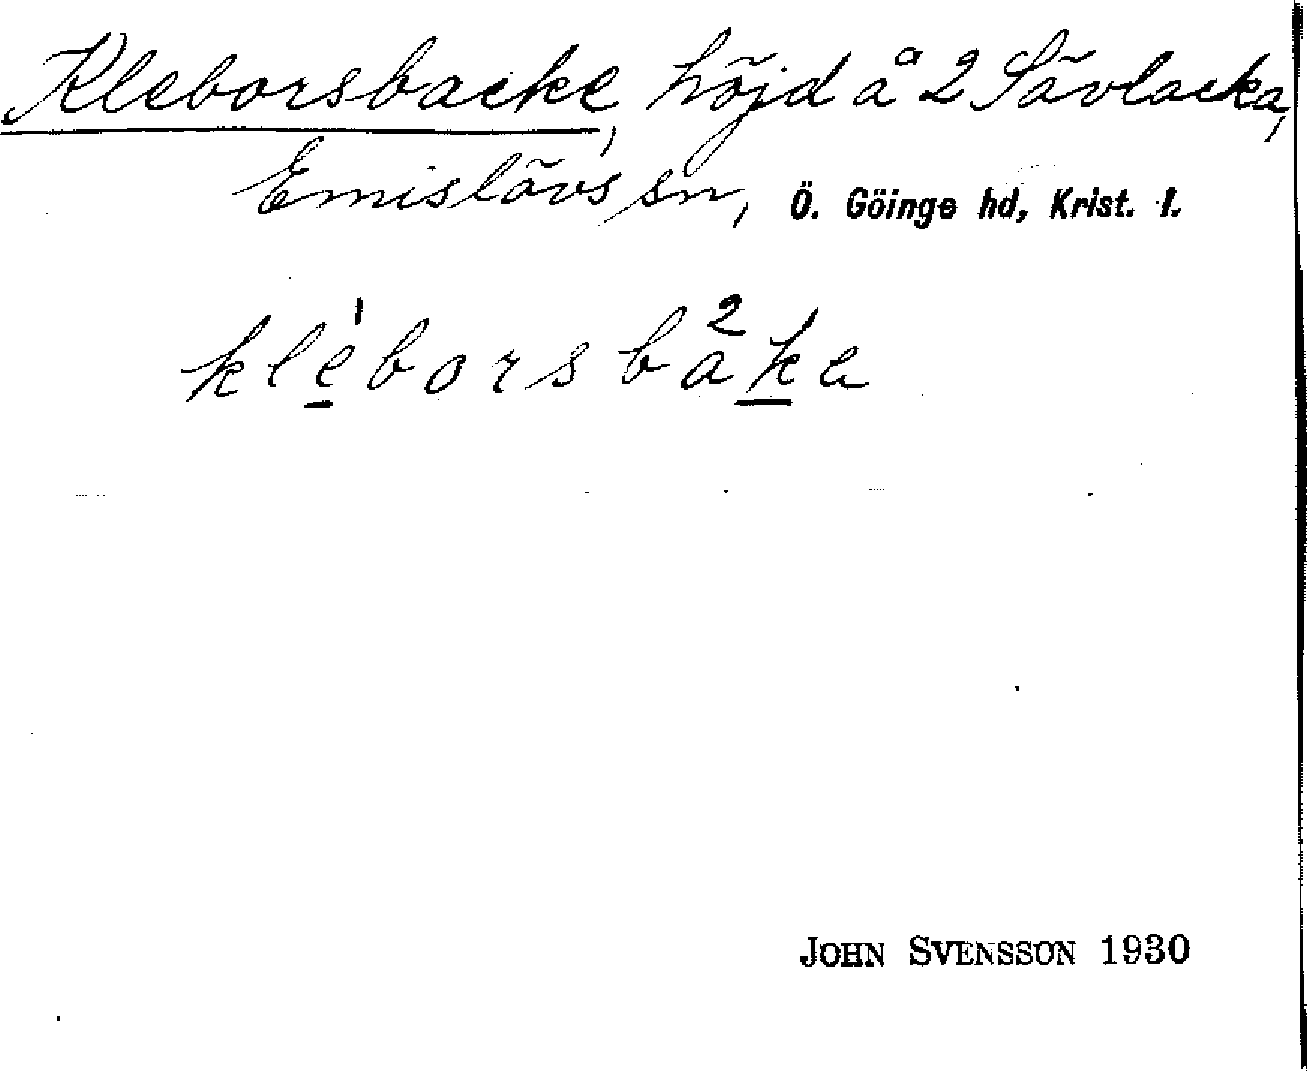 Kleborsbacke, höjd å 2 Sävlacka,
Emislövs sn, Ö. Göinge hd, Krist. l.
kle̱̍borsbå²ḵa
JOHN SVENSSON 1930